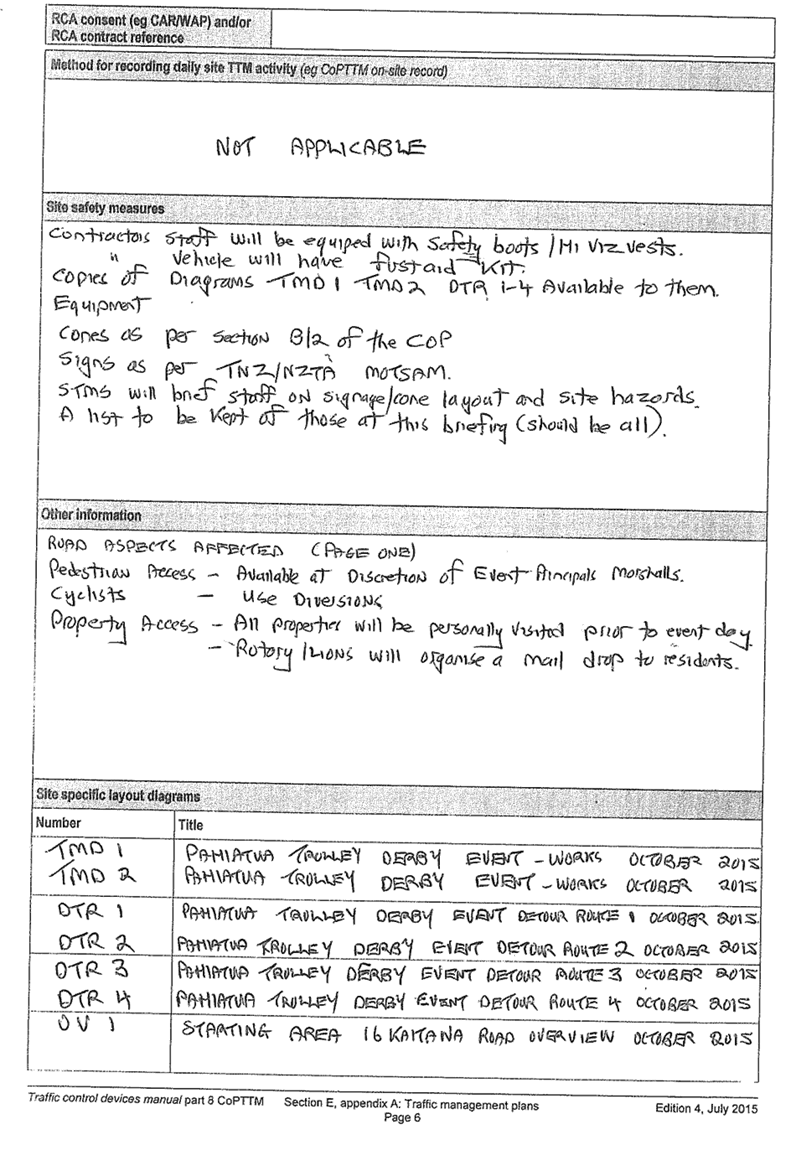 RCA consent (eg CAR/WAP) and/or
RCA contract reference
Method for recording daily site TTM activity (eg CoPTTM on-site record)
NOT APPLICABLE
Site safety measures
Contractors staff will be equiped with Safety boots / Hi Viz vests.
" Vehicle will have first aid Kit.
Copies of Diagrams TMD 1 TMD 2 DTR 1-4 Available to them.
Equipment
Cones as per section B/2 of the COP
Signs as per TNZ/NZTA MOTSAM.
STMS will brief staff on signage/cone layout and site hazards.
A list to be kept of those at this briefing (should be all).
Other information
ROAD ASPECTS AFFECTED (PAGE ONE)
Pedestrian Access - Available at Discretion of Event Principals Marshalls.
Cyclists - Use Diversions
Property Access - All properties will be personally visited prior to event day.
- Rotory / Lions will organise a mail drop to residents.
Site specific layout diagrams
Number Title
TMD 1 PAHIATUA TROLLEY DERBY EVENT - WORKS OCTOBER 2015
TMD 2 PAHIATUA TROLLEY DERBY EVENT - WORKS OCTOBER 2015
DTR 1 PAHIATUA TROLLEY DERBY EVENT DETOUR ROUTE 1 OCTOBER 2015
DTR 2 PAHIATUA TROLLEY DERBY EVENT DETOUR ROUTE 2 OCTOBER 2015
DTR 3 PAHIATUA TROLLEY DERBY EVENT DETOUR ROUTE 3 OCTOBER 2015
DTR 4 PAHIATUA TROLLEY DERBY EVENT DETOUR ROUTE 4 OCTOBER 2015
OV 1 STARTING AREA 16 KAITANA ROAD OVERVIEW OCTOBER 2015
Traffic control devices manual part 8 CoPTTM Section E, appendix A: Traffic management plans Edition 4, July 2015
Page 6